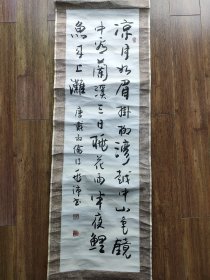 涼月如眉掛柳灣越中山色鏡
中看蘭溪三日桃花雨半夜鯉
魚來上灘 唐戴叔倫詩 書